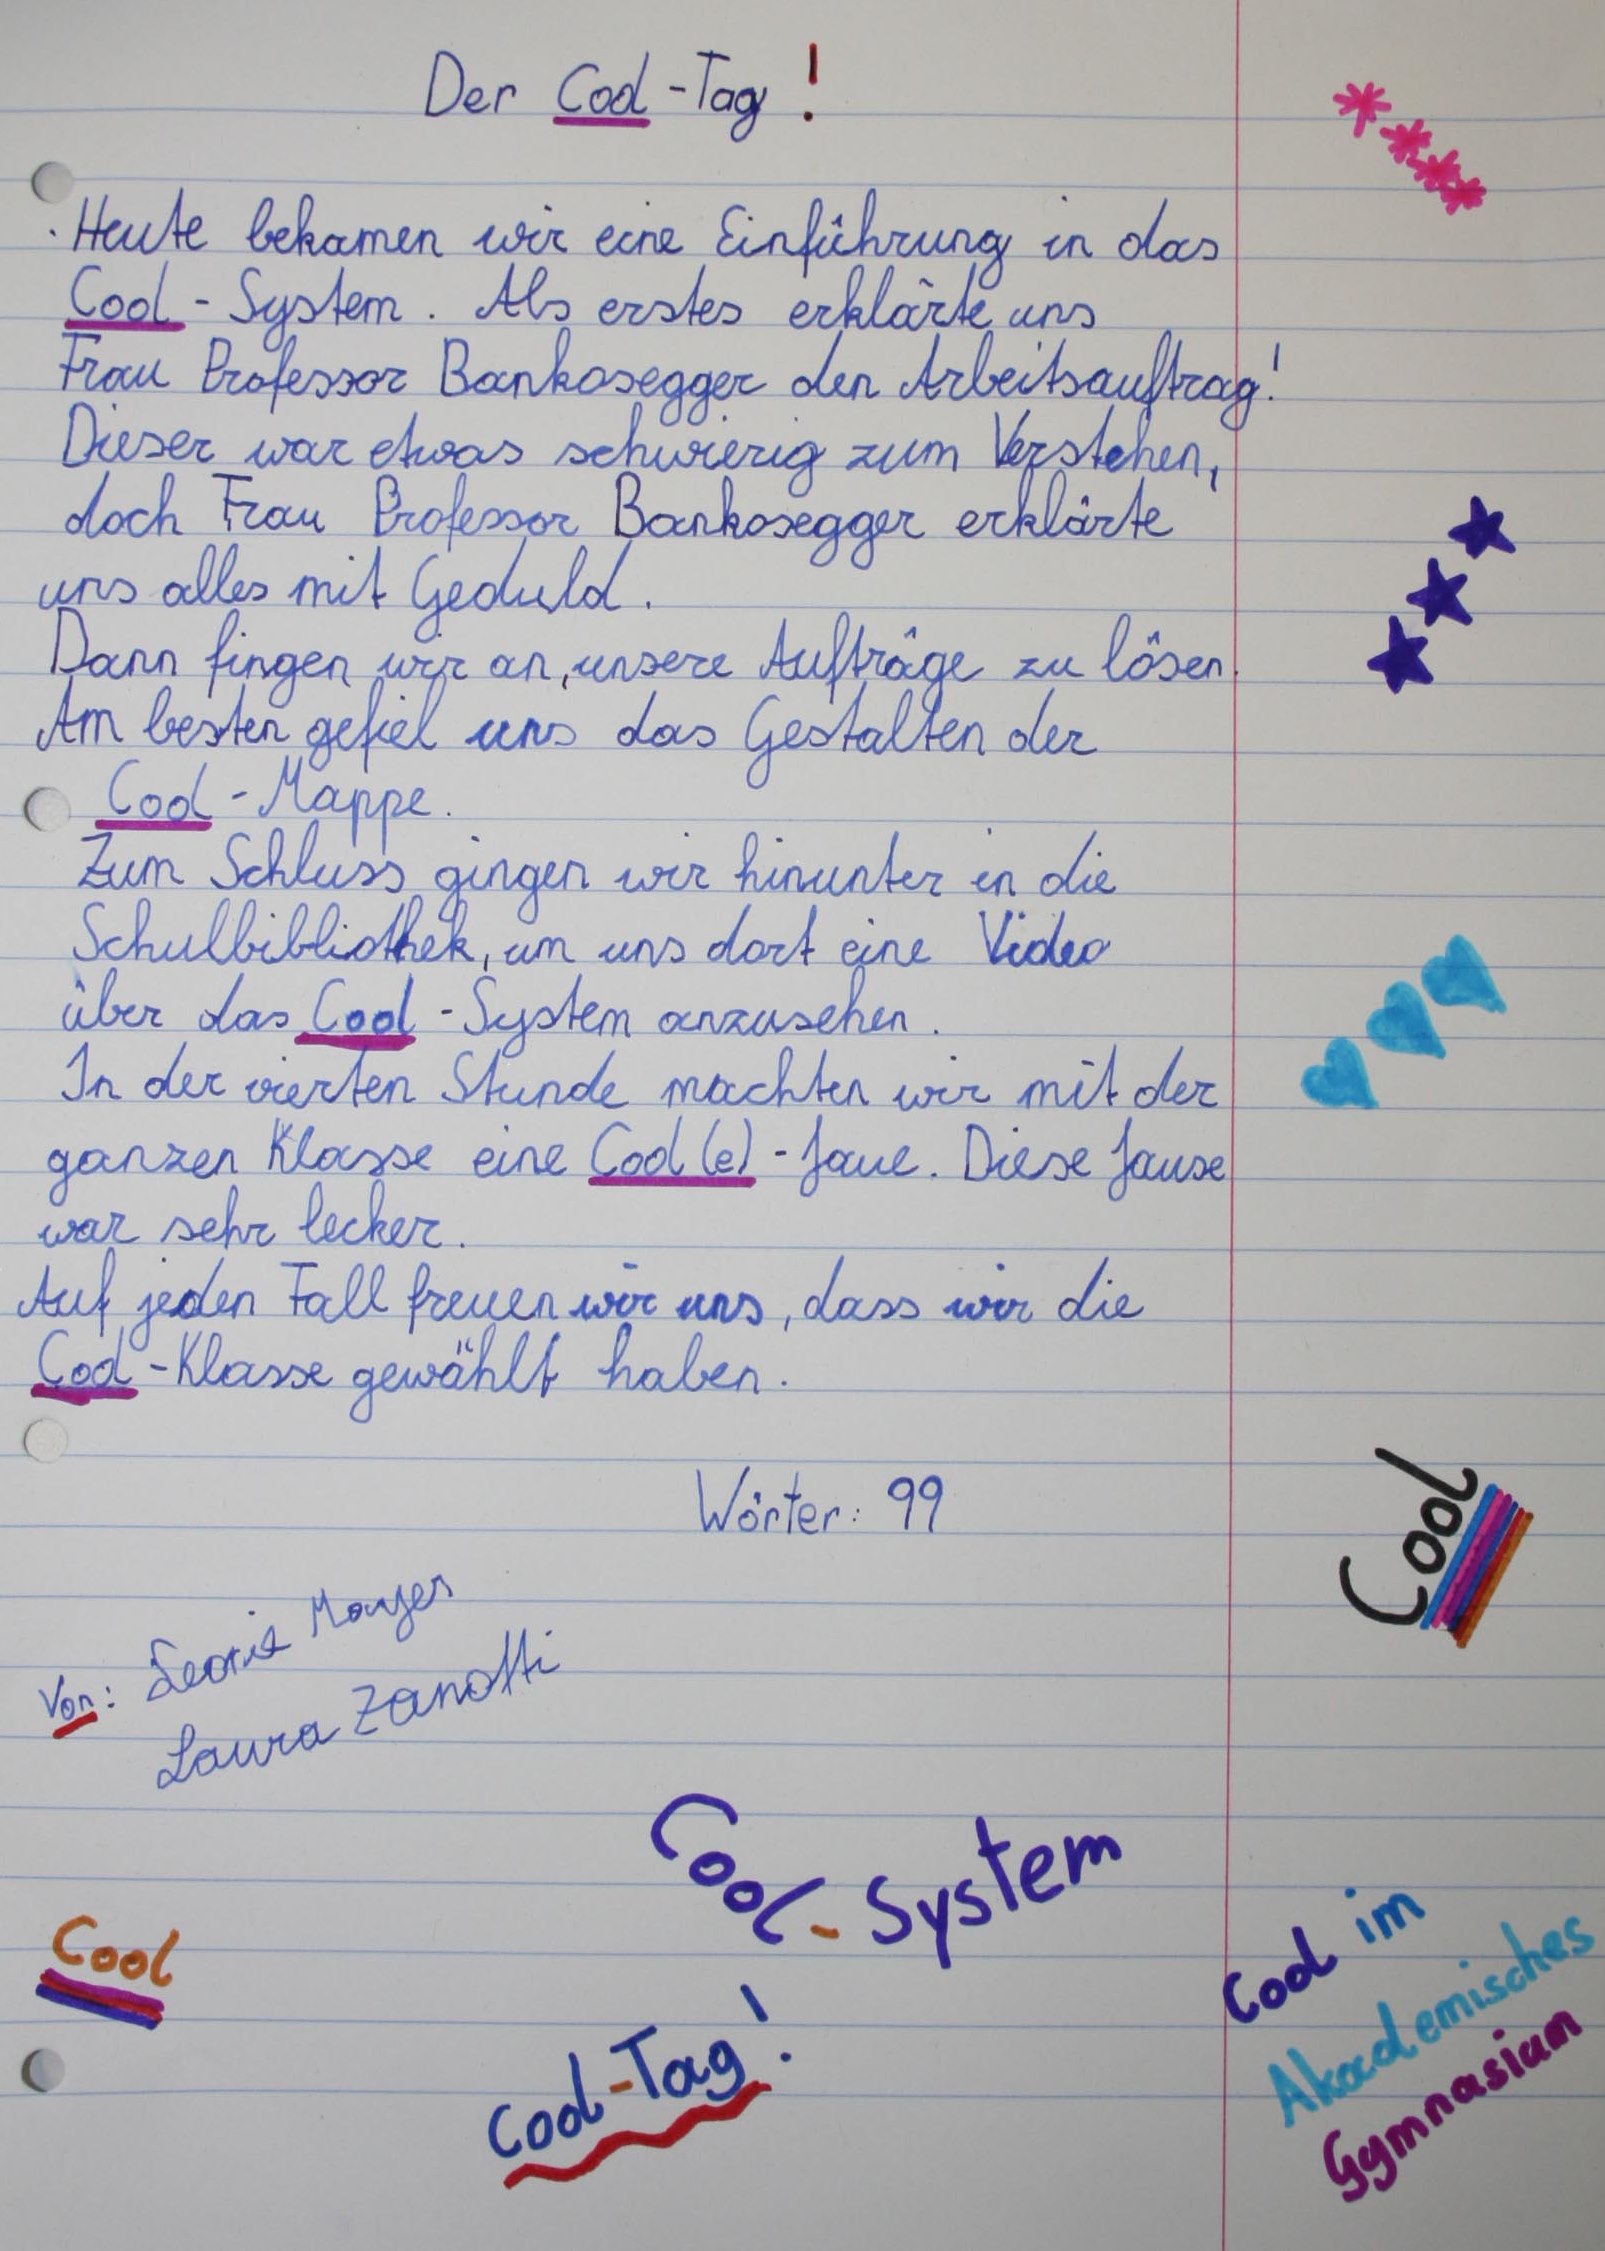 Der Cool-Tag!
Heute bekamen wir eine Einführung in das
Cool-System. Als erstes erklärte uns
Frau Professor Bankosegger den Arbeitsauftrag!
Dieser war etwas schwierig zum Verstehen,
doch Frau Professor Bankosegger erklärte
uns alles mit Geduld.
Dann fingen wir an, unsere Aufträge zu lösen.
Am besten gefiel uns das Gestalten der
Cool-Mappe.
Zum Schluss gingen wir hinunter in die
Schulbibliothek, um uns dort eine Video
über das Cool-System anzusehen.
In der vierten Stunde machten wir mit der
ganzen Klasse eine Cool(e)-Jaue. Diese Jause
war sehr lecker.
Auf jeden Fall freuen wir uns, dass wir die
Cool-Klasse gewählt haben.
Wörter: 99
Cool
Von:
Laura Zanotti
Cool-System
Cool
Cool-Tag!
Cool im
Akademisches
Gymnasium